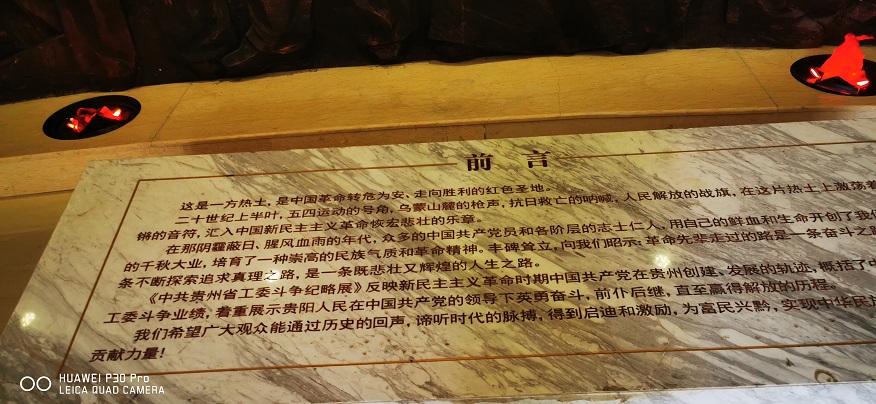 前言
这是一方热土，是中国革命转危为安、走向胜利的红色圣地。
二十世纪上半叶，五四运动的号角，乌蒙山麓的枪声，抗日救亡的呐喊，人民解放的战旗，在这片热土上激荡着
锵的音符，汇入中国新民主主义革命恢宏悲壮的乐章。
在那阴霾蔽日、腥风血雨的年代，众多的中国共产党员和各阶层的志士仁人，用自己的鲜血和生命开创了我们
的千秋大业，培育了一种崇高的民族气质和革命精神。丰碑耸立，向我们昭示：革命先辈走过的路是一条奋斗之路
条不断探索追求真理之路，是一条既悲壮又辉煌的人生之路。
《中共贵州省工委斗争纪略展》反映新民主主义革命时期中国共产党在贵州创建、发展的轨迹，概括了中
工委斗争业绩，着重展示贵阳人民在中国共产党的领导下英勇奋斗，前仆后继，直至赢得解放的历程。
我们希望广大观众能通过历史的回声，谛听时代的脉搏，得到启迪和激励，为富民兴黔，实现中华民族
贡献力量！
HUAWEI P30 Pro
LEICA QUAD CAMERA